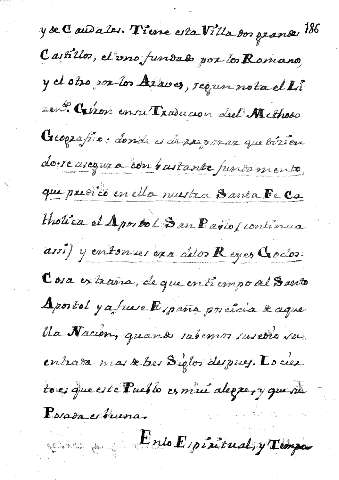 186
y de Caudales. Tiene esta Villa dos grandes
Castillos, el uno fundado por los Romanos,
y el otro por los Araves, segun nota el Li
zend.º Giron en su Traducion del Methodo
Geografico: donde es de reparar que dizien
dose asegura con bastante fundamento,
que predicó en ella nuestra Santa Fe Ca
tholica el Apostol San Pablo (continua
assi) y entonces era de los Reyes Godos.
Cosa extraña, de que en tiempo del Santo
Apostol ya fuese España poseida de aque
lla Nacion, quando sabemos sucedió su
entrada mas de tres Siglos despues. Lo cier
to es que este Pueblo es mui alegre, y que su
Posada es buena.
En lo Espiritual, y Tempo